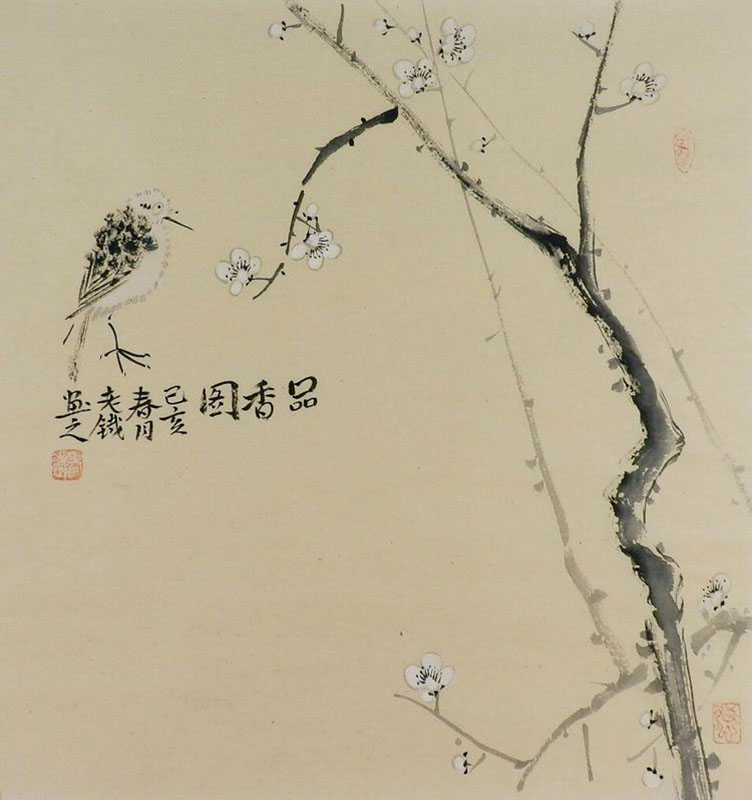 品香图
己亥
春月
老铁
画之